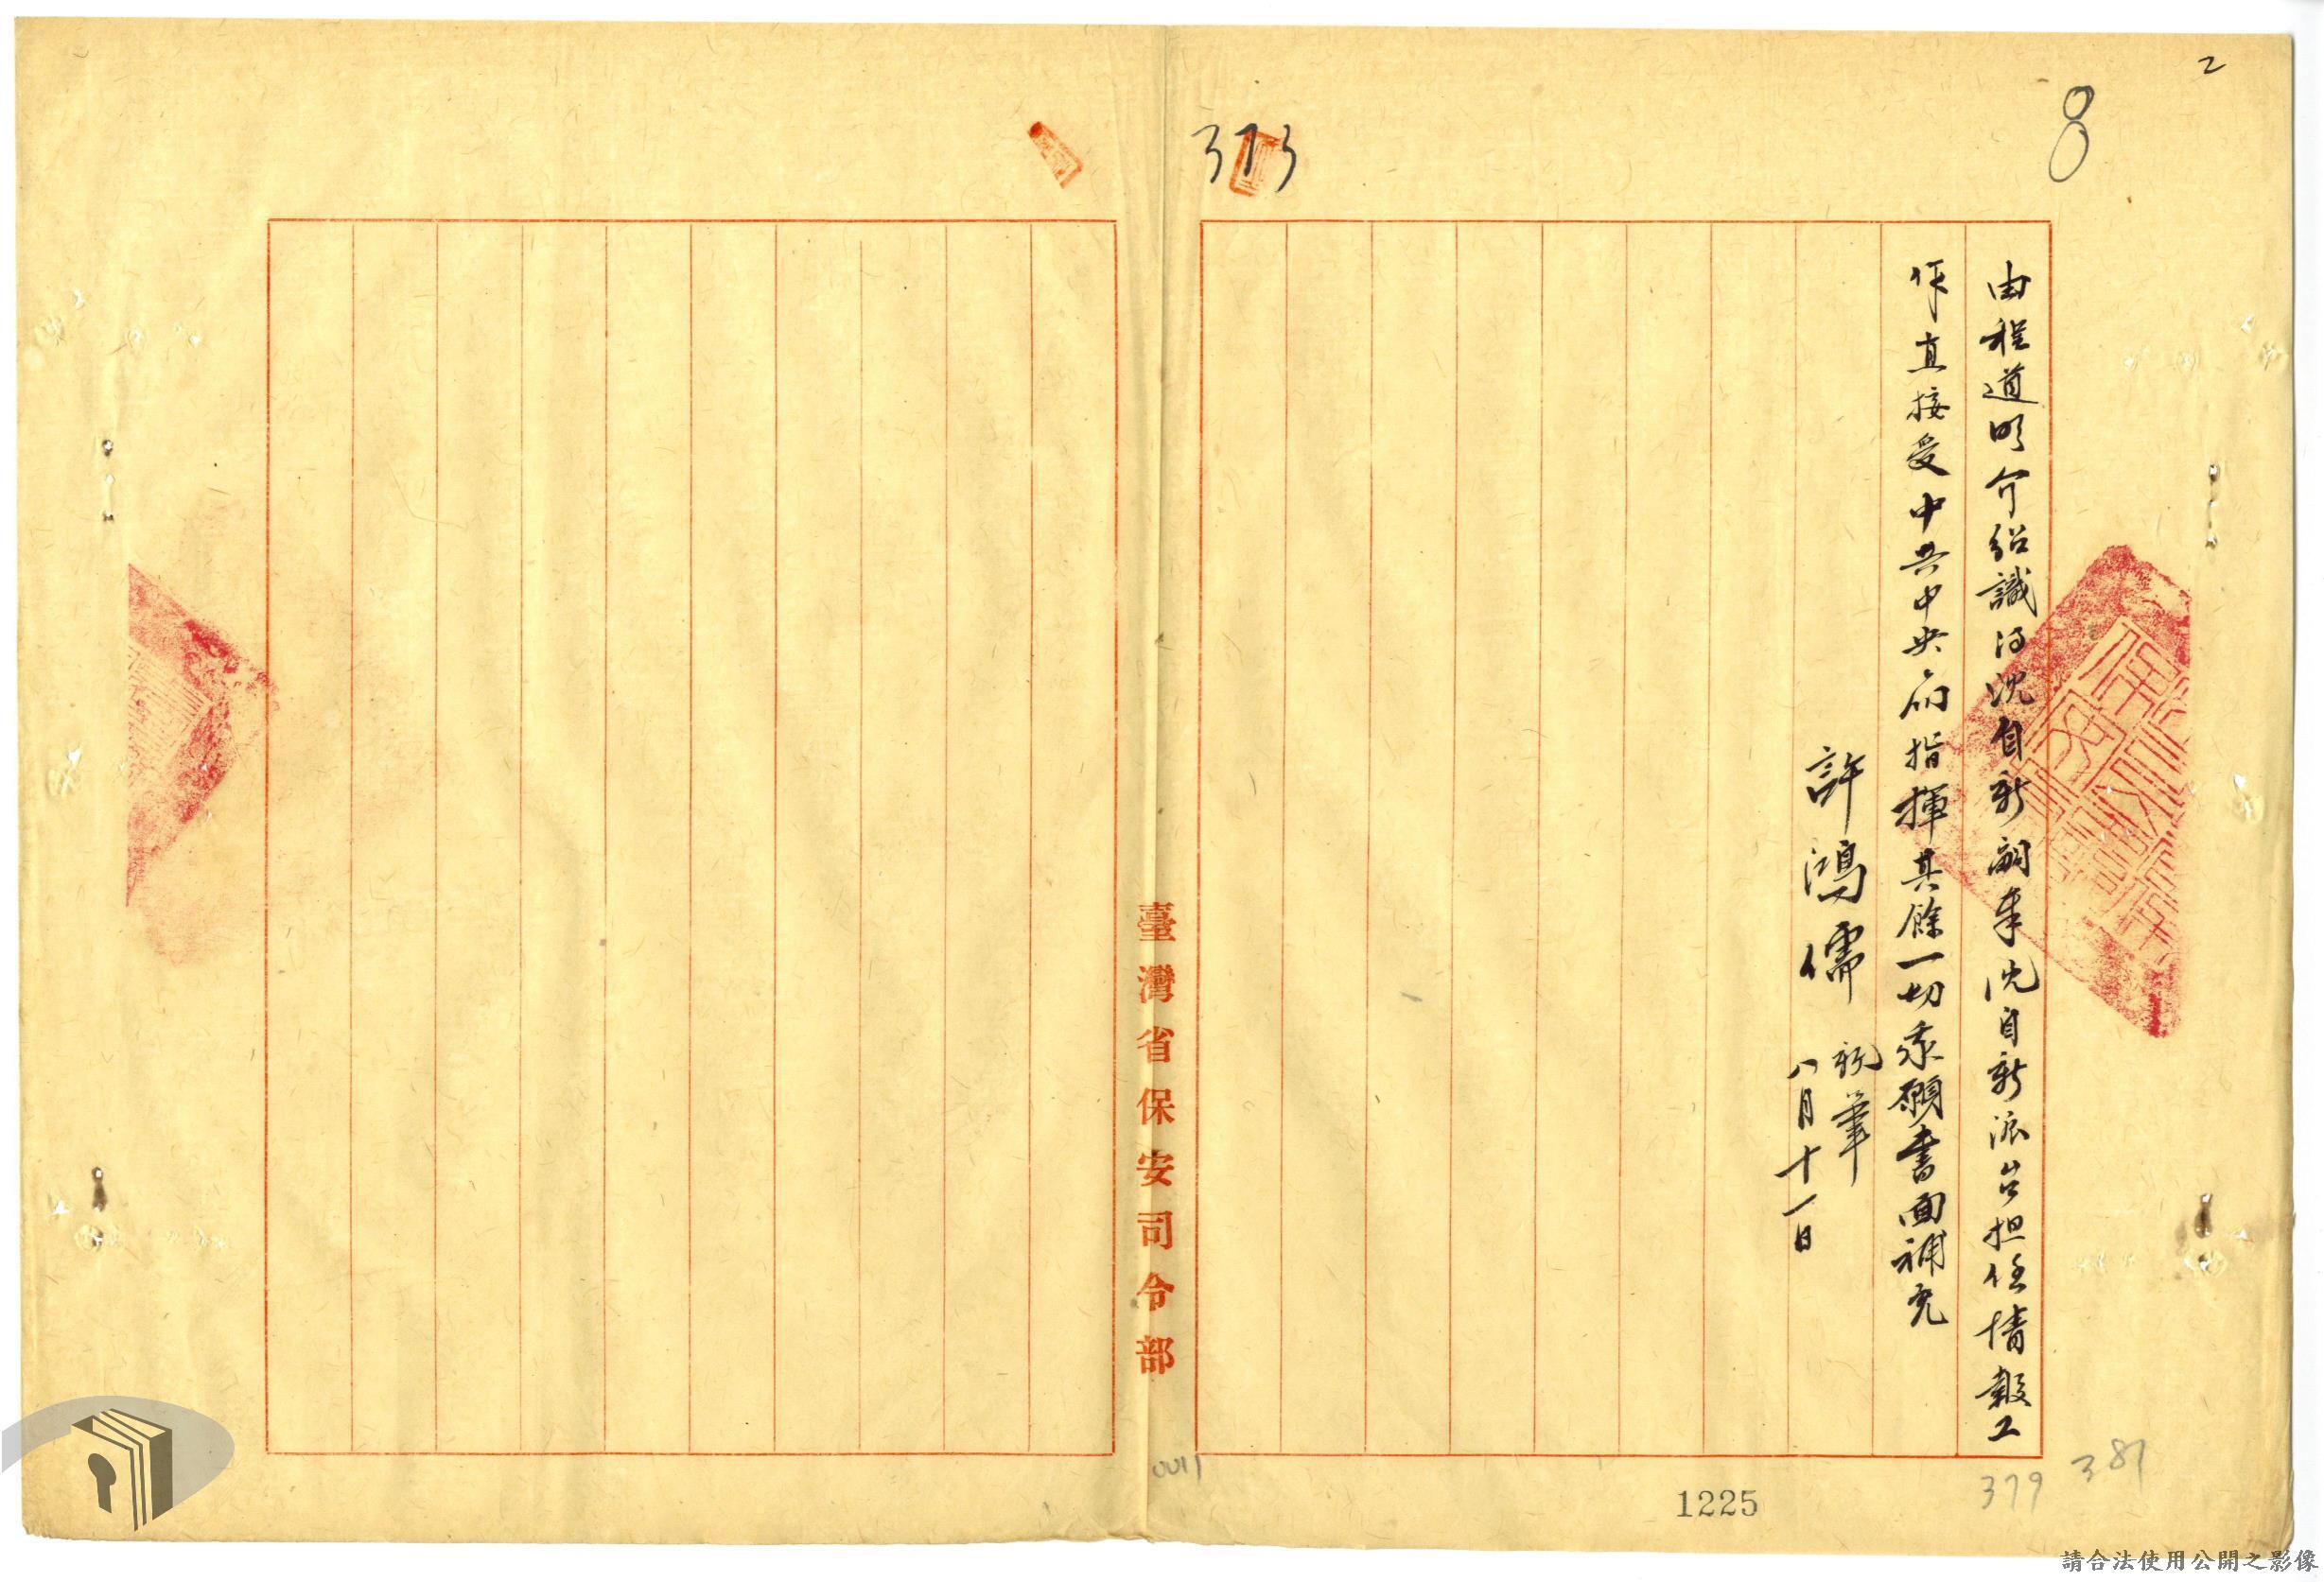 2
8
373
由程道明介紹識得沈自新嗣奉沈自新派台担任情報工
作直接受中共中央局指揮其餘一切亲願書面補充
許鴻儒 親筆
八月十一日
臺灣省保安司令部
0011
1225
379
381
請合法使用公開之影像